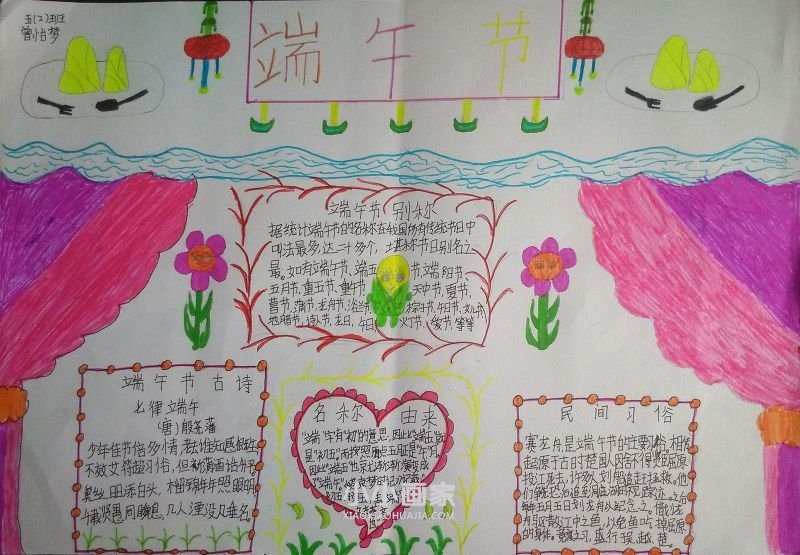 五(2)班
曾怡梦
端午节
端午节别称
据统计端午节的名称在我国所有传统节日中
叫法最多,达二十多个,堪称节日别名之
最。如有端午节、端五节、端阳节、
五月节、重五节、重午节、天中节、夏节、
菖节、蒲节、龙舟节、浴兰节、粽子节、午日节、女儿节、
地腊节、诗人节、龙日、午日、灯节、等等
端午节古诗
七律端午
(唐)殷尧藩
少年佳节倍多情,老去谁知感慨生
不效艾符趋习俗,但祈蒲酒话升平
鬓丝日日添白头,榴锦年年照眼明
千载贤愚同瞬息,几人湮没几垂名。
名称 由来
“端”字有“初”的意思,因此“端五”就
是“初五”
民间习俗
赛龙舟,是端午节的主要习俗,相传
起源于古时楚国人因舍不得贤臣屈原
投江死去,许多人划船追赶拯救。他
之后
每年五月五日划龙舟以纪念之。借划龙
舟驱散江中之鱼,以免鱼吃掉屈原
的身体。竞渡之习,盛行于吴、越、楚。
小小画家
XIAOXIAOHUAJIA.COM